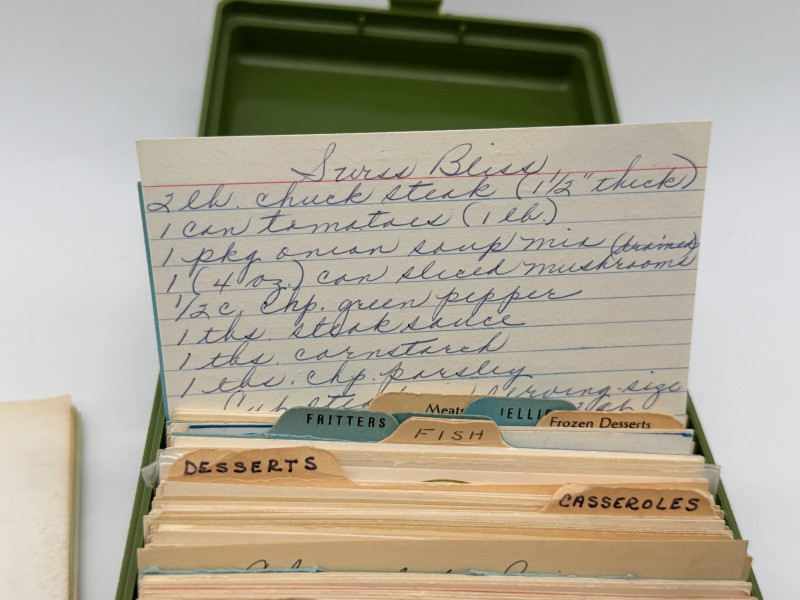 Swiss Bliss
2 lb. chuck steak (1 1/2" thick)
1 can tomatoes (1 lb.)
1 pkg onion soup mix
(drained)
1 (4 oz.) can sliced mushrooms
1/2 c. chp. green pepper
1 tbs. steak sauce
1 tbs. cornstarch
1 tbs. chp. parsley
Cut steak serving-size
Meats
JELLIE
FRITTERS
FISH
Frozen Desserts
DESSERTS
CASSEROLES